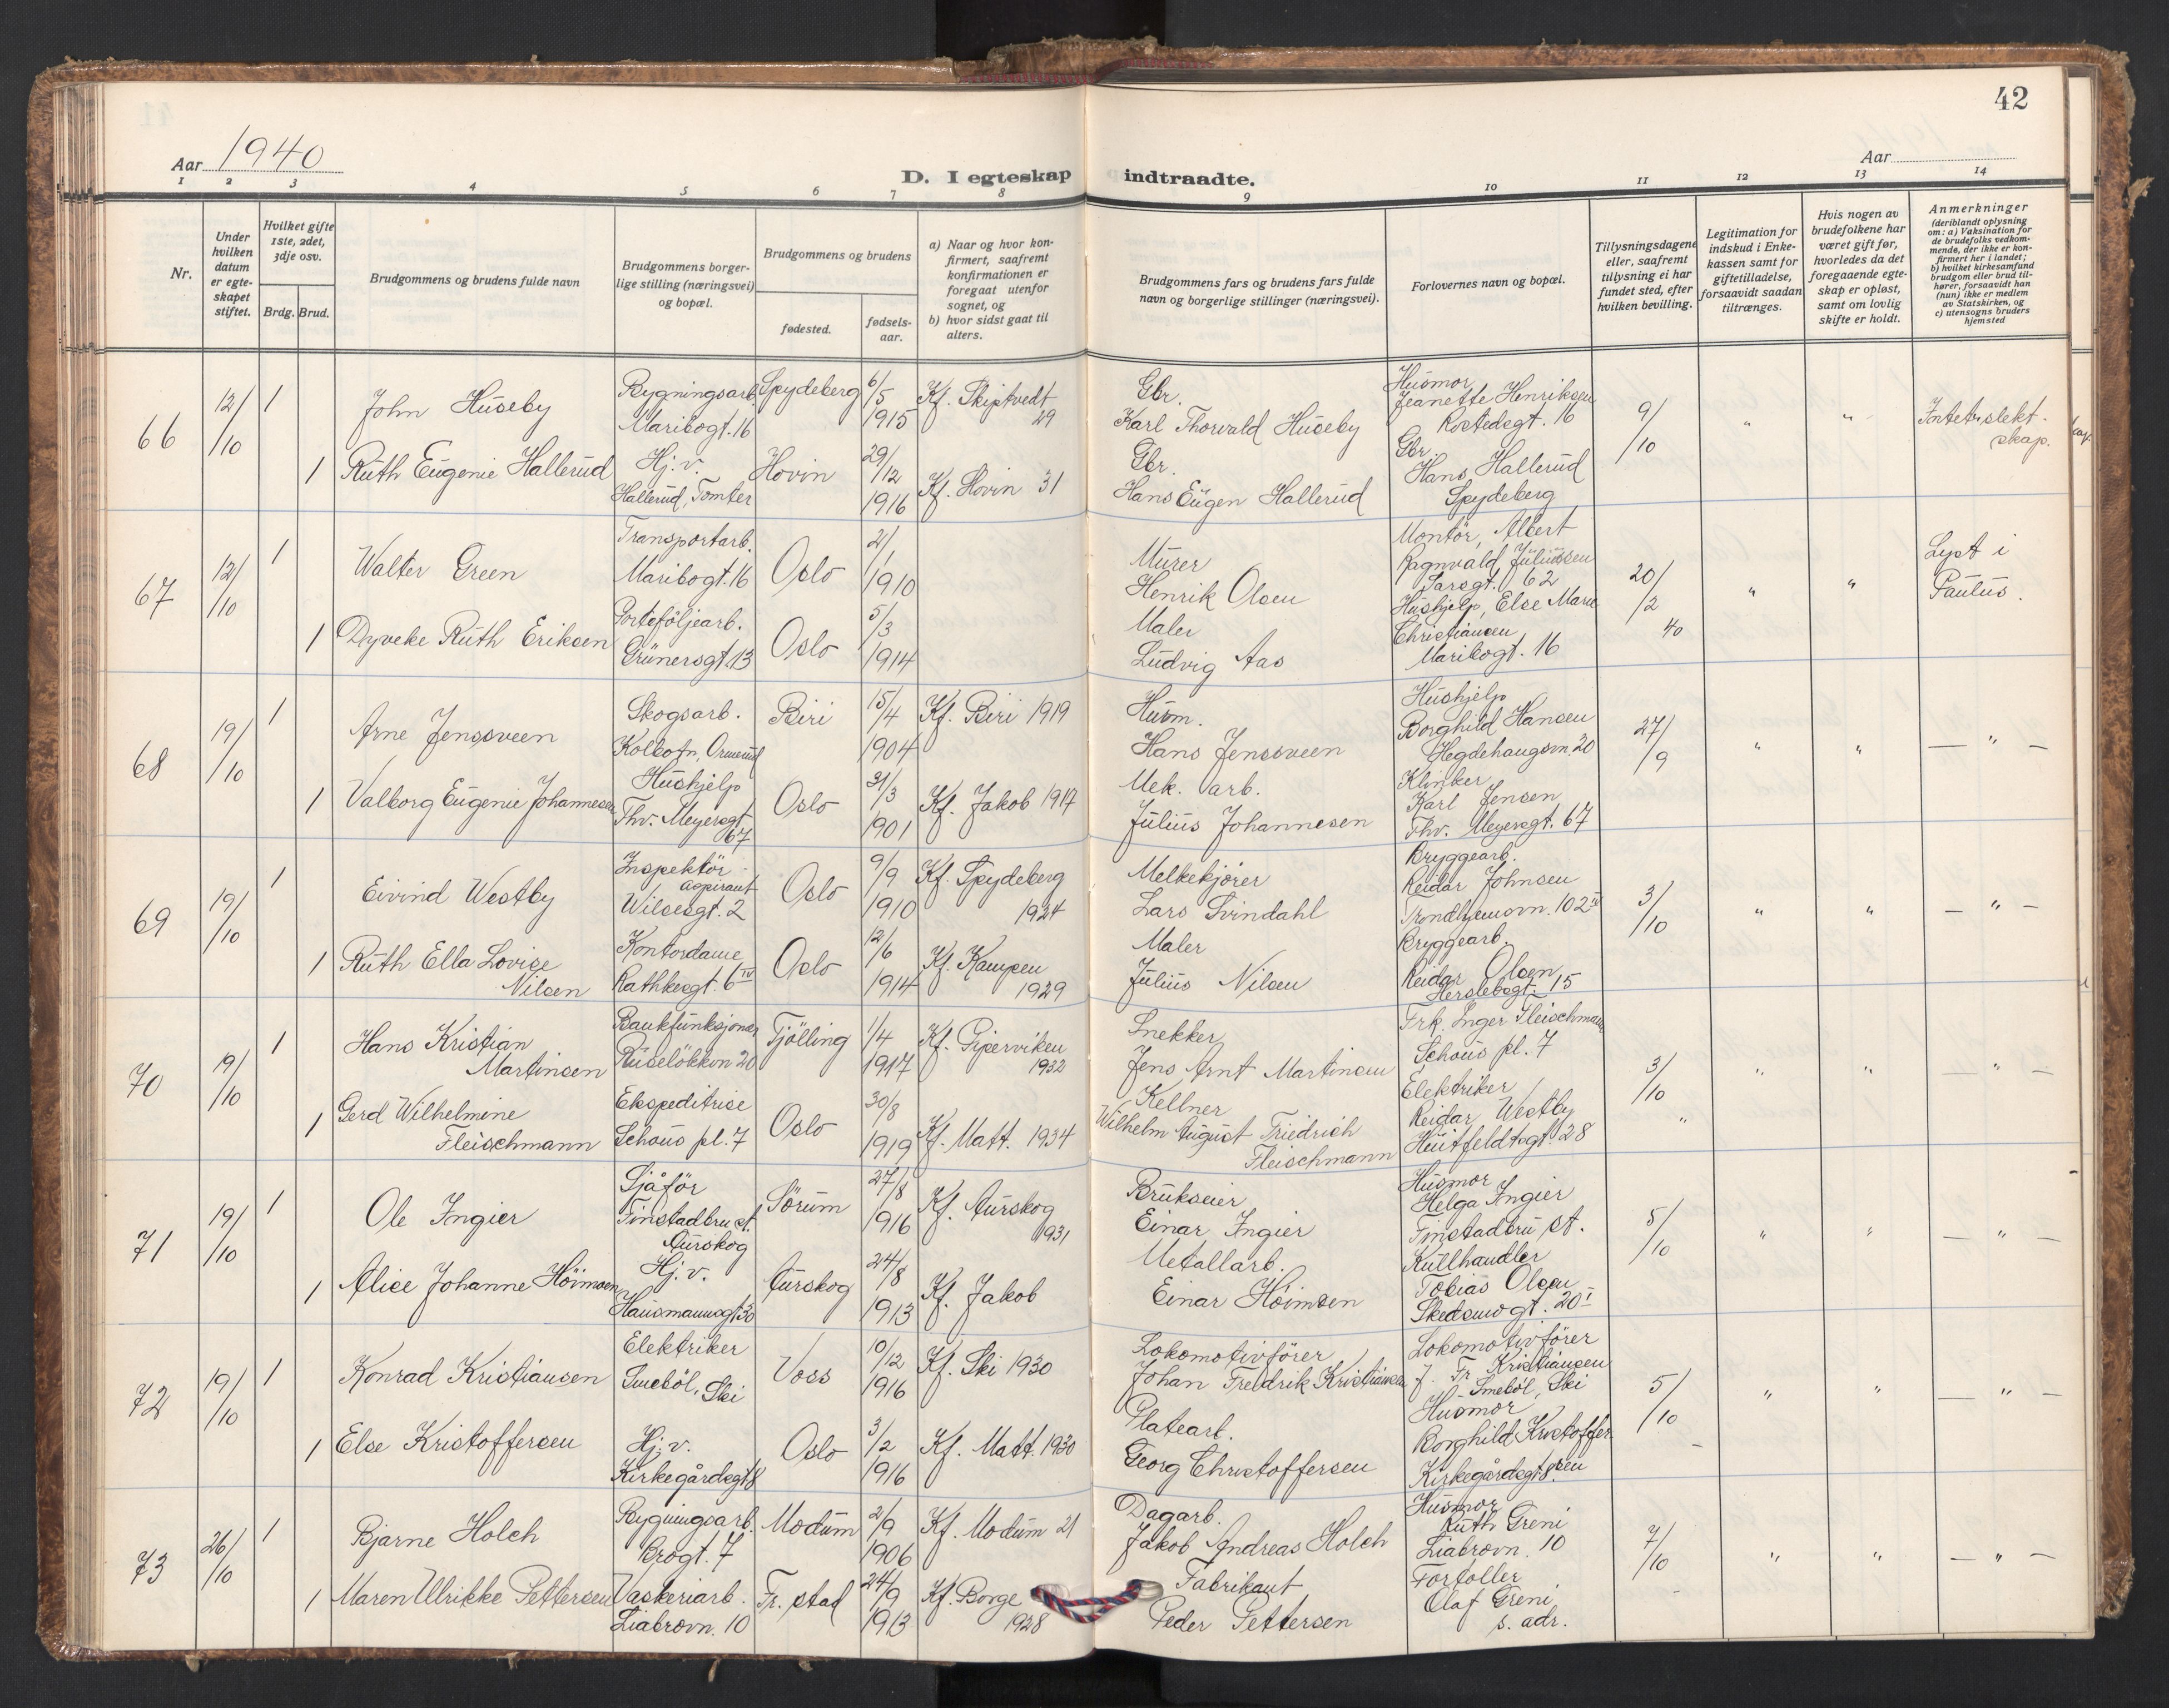 42
Aar 1940
D. I egteskap indtraadte.
Aar
1 2 3 4 5 6 7 8 9 10 11 12 13 14
Nr.
Under hvilken datum er egteskapet stiftet.
Hvilket gifte 1ste, 2det, 3dje osv.
Brdg. Brud.
Brudgommens og brudens fulde navn
Brudgommens borgerlige stilling (næringsvei) og bopæl.
Brudgommens og brudens
fødested.
fødselsaar.
a) Naar og hvor konfirmert, saafremt konfirmationen er foregaat utenfor sognet, og
b) hvor sidst gaat til alters.
Brudgommens fars og brudens fars fulde navn og borgerlige stillinger (næringsvei).
Forlovernes navn og bopæl.
Tillysningsdagene eller, saafremt tillysning ei har fundet sted, efter hvilken bevilling.
Legitimation for indskud i Enkekassen samt for giftetilladelse, forsaavidt saadan tiltrænges.
Hvis nogen av brudefolkene har været gift før, hvorledes da det foregaaende egteskap er opløst, samt om lovlig skifte er holdt.
Anmerkninger
(deriblandt oplysning om: a) Vaksination for de brudefolks vedkommende, der ikke er konfirmert her i landet; b) hvilket kirkesamfund brudgom eller brud tilhører, forsaavidt han (hun) ikke er medlem av Statskirken, og c) utensogns bruders hjemsted
66 12/10 1 John Huseby Bygningsarb. Maribogt. 16 Spydeberg 6/5 1915 Kf. Skiptvedt 29 Gbr. Karl Thorvald Huseby Husmor Jeanette Henriksen Rostedsgt. 16 9/10 " " Intet slektskap.
1 Ruth Eugenie Hallerud Hj. v. Hallerud, Tomter Hovin 29/12 1916 Kf. Hovin 31 Gbr. Hans Eugen Hallerud Gbr. Hans Hallerud Spydeberg
67 12/10 1 Walter Green Transportarb. Maribogt. 16 Oslo 2/1 1910 Murer Henrik Olsen Montör, Albert Ragnvald Juliussen Sarsgt. 62 20/2 40 " " Lyst i Paulus.
1 Dyveke Ruth Eriksen Porteföljearb. Grünersgt. 13 Oslo 5/3 1914 Maler Ludvig Aas Hushjelp, Else Marie Christiansen Maribogt. 16
68 19/10 1 Arne Jensveen Skogsarb. Kolbotn, Ormerud Biri 15/4 1904 Kf. Biri 1919 Husm. Hans Jensveen Hushjelp Borghild Hansen Hegdehaugsvn. 20 27/9 " " — " —
1 Valborg Eugenie Johannesen Hushjelp Thv. Meyersgt. 67 Oslo 31/3 1901 Kf. Jakob 1917 Mek. arb. Julius Johannesen Klinker Karl Jensen Thv. Meyersgt. 67
69 19/10 1 Eivind Westby Inspektör aspirant Wilsesgt. 2 Oslo 9/9 1910 Kf. Spydeberg 1924 Melkekjører Lars Svindahl Bryggearb. Reidar Johnsen Trondhjemsvn. 102 3/10 " " — " —
1 Ruth Ella Lovise Nilsen Kontordame Rathkesgt. 6 IV Oslo 12/6 1914 Kf. Kampen 1929 Maler Julius Nilsen Bryggearb. Reidar Olsen Herslebsgt. 15
70 19/10 1 Hans Kristian Martinsen Bankfunksjonær Ruselökkvn 20 Tjölling 1/4 1917 Kf. Piperviken 1932 Snekker Jens Arnt Martinsen Frk. Inger Fleischmann Schous pl. 7 3/10 " " — " —
1 Gerd Wilhelmine Fleischmann Ekspeditrise Schous pl. 7 Oslo 30/8 1919 Kf. Matt. 1934 Kellner Wilhelm August Friedrich Fleischmann Elektriker Reidar Westby Huitfeldtsgt. 28 "
71 19/10 1 Ole Ingier Sjåför Finstadbru st. Aurskog Sörum 27/8 1916 Kf. Aurskog 1931 Brukseier Einar Ingier Husmor Helga Ingier Finstadbru st. 5/10 " " — " —
1 Alice Johanne Höimsen Hj. v. Hausmannsgt 30 Aurskog 24/8 1913 Kf. Jakob Metallarb. Einar Höimsen Kullhandler Tobias Olsen Skedsmogt. 20 I
72 19/10 1 Konrad Kristiansen Elektriker Smeböl, Ski Voss 10/12 1916 Kf. Ski 1930 Lokomotivförer Johan Fredrik Kristiansen Lokomotivförer J. Fr. Kristiansen Smeböl, Ski 5/10 " " — " —
1 Else Kristoffersen Hj. v. Kirkegårdsgt 8 Oslo 3/2 1916 Kf. Matt. 1930 Platearb. Georg Christoffersen Husmor Borghild Kristoffersen Kirkegårdsgt 8.
73 26/10 1 Bjarne Holch Bygningsarb. Brogt. 7 Modum 2/9 1906 Kf. Modum 21 Dagarb. Jakob Andreas Holch Husmor Ruth Greni Liabrovn. 10 7/10 " " — " —
1 Maren Ulrikke Pettersen Vaskeriarb. Liabrovn. 10 Fr. stad 24/9 1913 Kf. Borge 1928 Fabrikant Peder Pettersen Fortoller Olaf Greni s. adr.